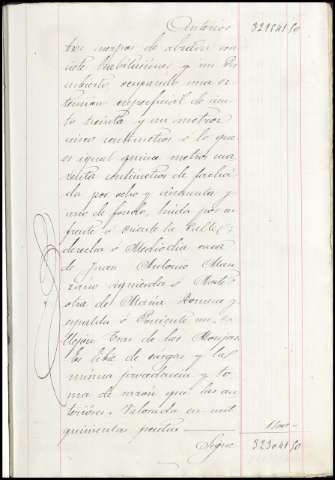 Anteriores 321541 50
tres cuerpos de alzada con
siete habitaciones y un des
cubierto ocupando una es
tension superficial de cien
to treinta y un metros
cinco centimetros ó lo que
es igual quince metros cua
renta centimetros de facha
da por ocho y cincuenta y
uno de fondo, linda por su
frente ó Oriente la Calle,
derecha ó Mediodia casa
de Juan Antonio Man
zano izquierda ó Norte
otra de Maria Romero y
espalda ó Poniente un Ca
llejon Tras de las Monjas
Es libre de cargas y la
misma procedencia y to
ma de razon que las an
teriores. Valorada en mil
quinientas pesetas 1500
Sigue 323041 50